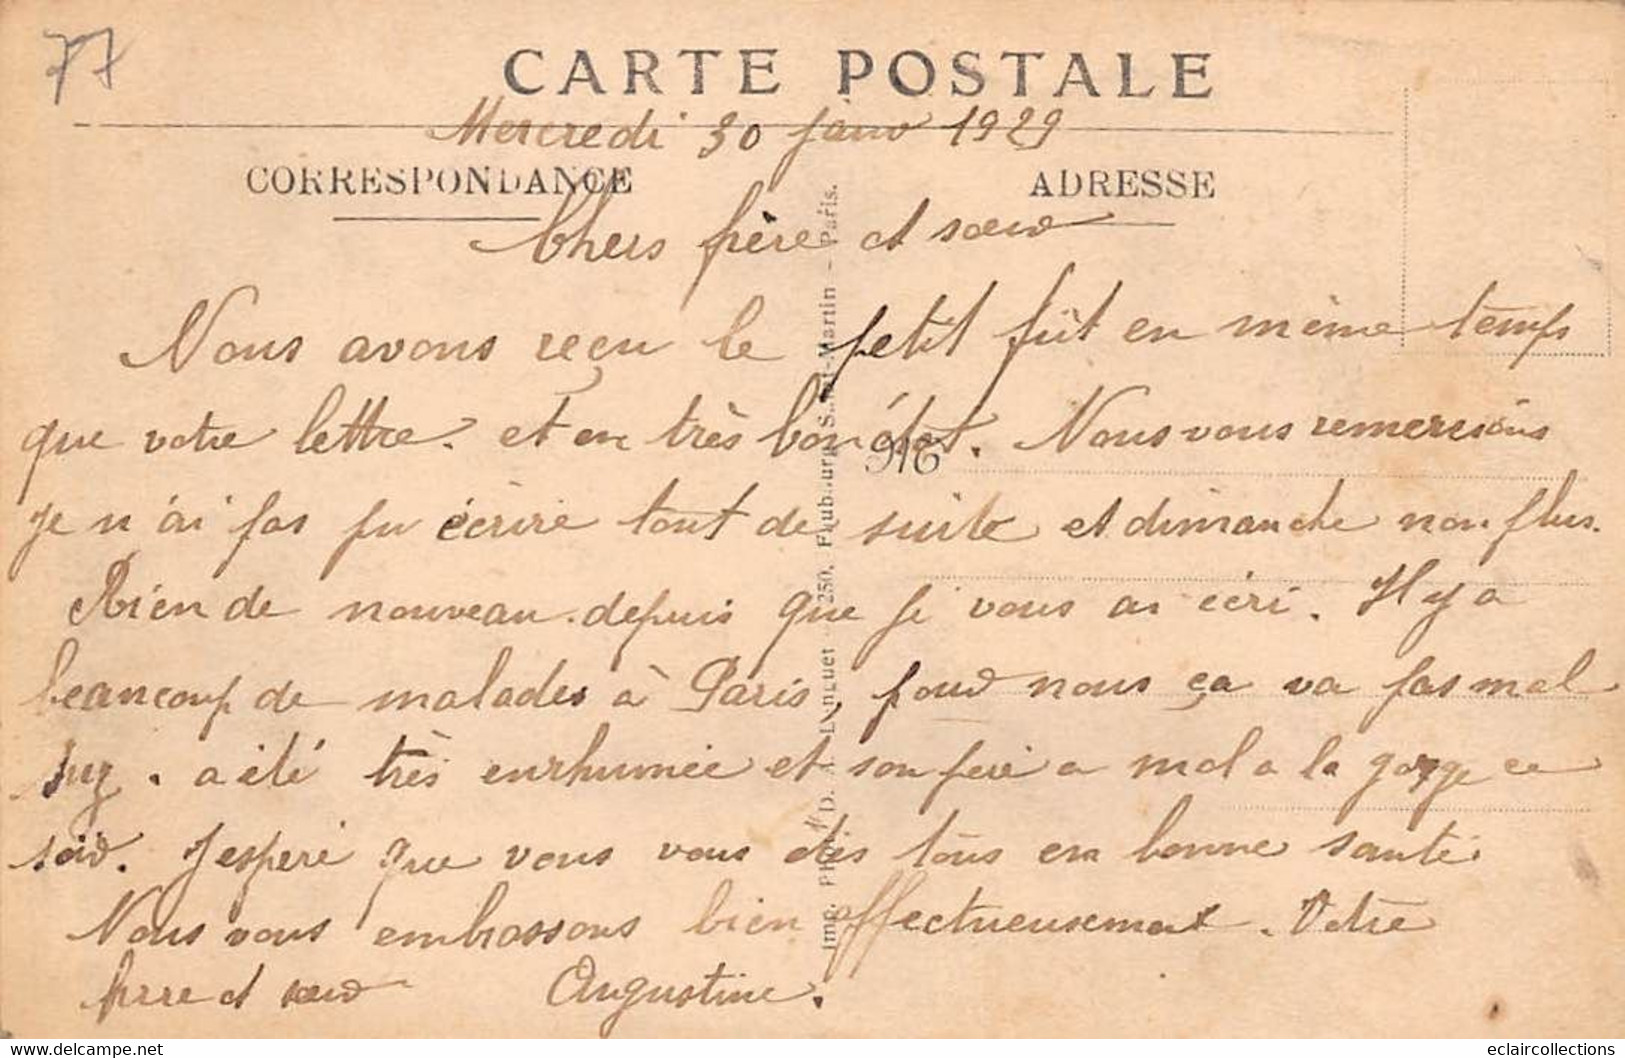 77
CARTE POSTALE
Mercredi 30 janv 1929
CORRESPONDANCE
ADRESSE
Chers frère et sœur
Nous avons reçu le petit fût en même temps
que votre lettre. et en très bon état. Nous vous remercions
916
je n'ai pas pu écrire tout de suite et dimanche non plus.
Rien de nouveau. depuis que je vous ai écri. Il y a
beaucoup de malades à Paris, pour nous ça va pas mal
Suz. a été très enrhumée et son père a mal a la gorge ce
soir. J'espere que vous vous êtes tous en bonne santé
Nous vous embrassons bien affectueusement. Votre
frere et sœur Augustine.
Imp. Phot. D. A. Longuet - 250, Faubourg Saint-Martin - Paris.
https://www.delcampe.net
eclaircollections